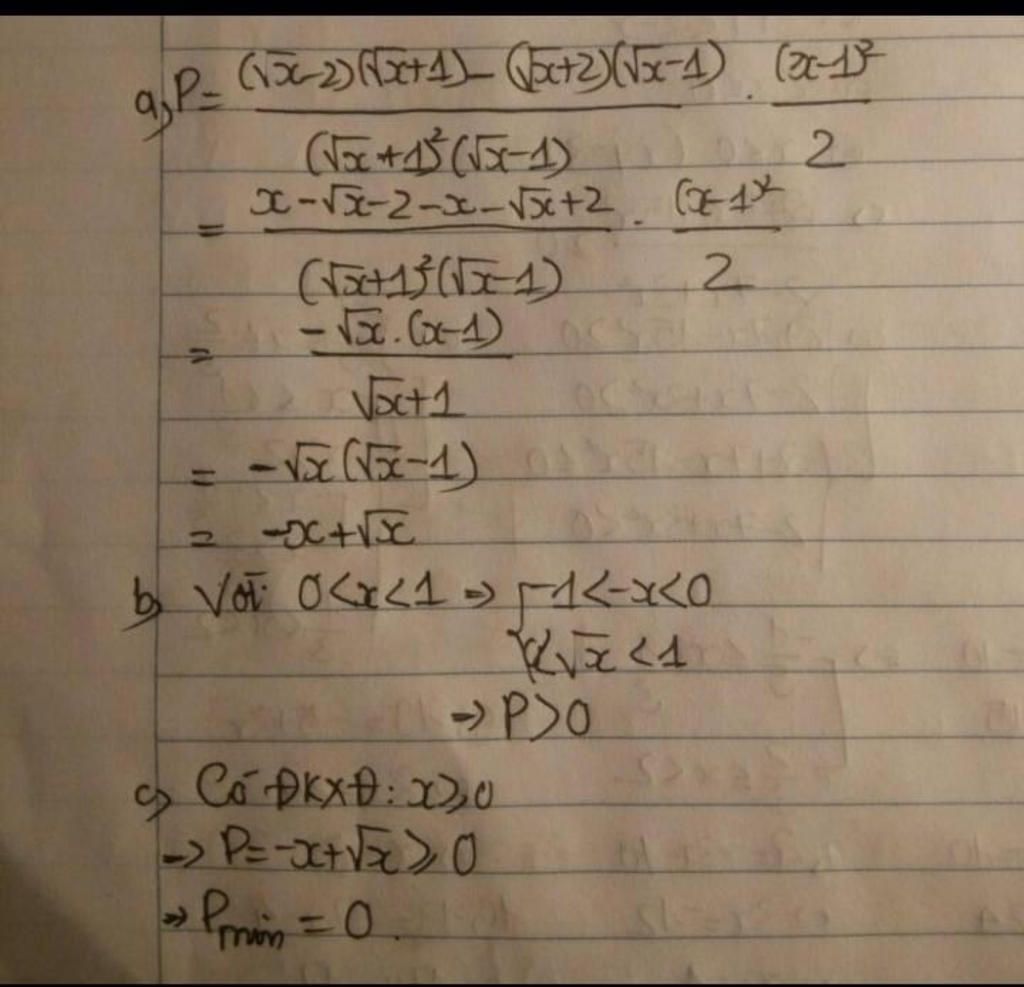 a, P = ((√x-2)(√x+1) - (√x+2)(√x-1))/((√x+1)²(√x-1)) . (x-1)²/2
= (x-√x-2-x-√x+2)/((√x+1)²(√x-1)) . (x-1)²/2
= (-√x.(x-1))/(√x+1)
= -√x(√x-1)
= -x+√x
b, Với 0<x<1 => { -1<-x<0
0<√x<1
=> P>0
c, Có ĐKXĐ: x≥0
-> P=-x+√x ≥ 0
=> Pmin = 0.